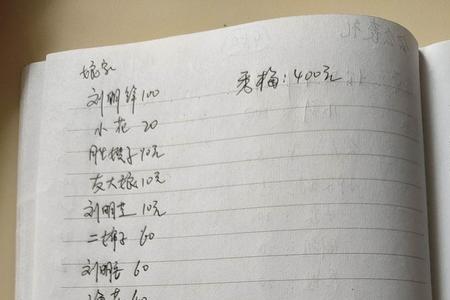 娘家
刘明锋100
秀梅:400元
小花 20
胜嫂子 10元
友大娘 10元
刘明芝 10元
二婶子 60
刘明 60